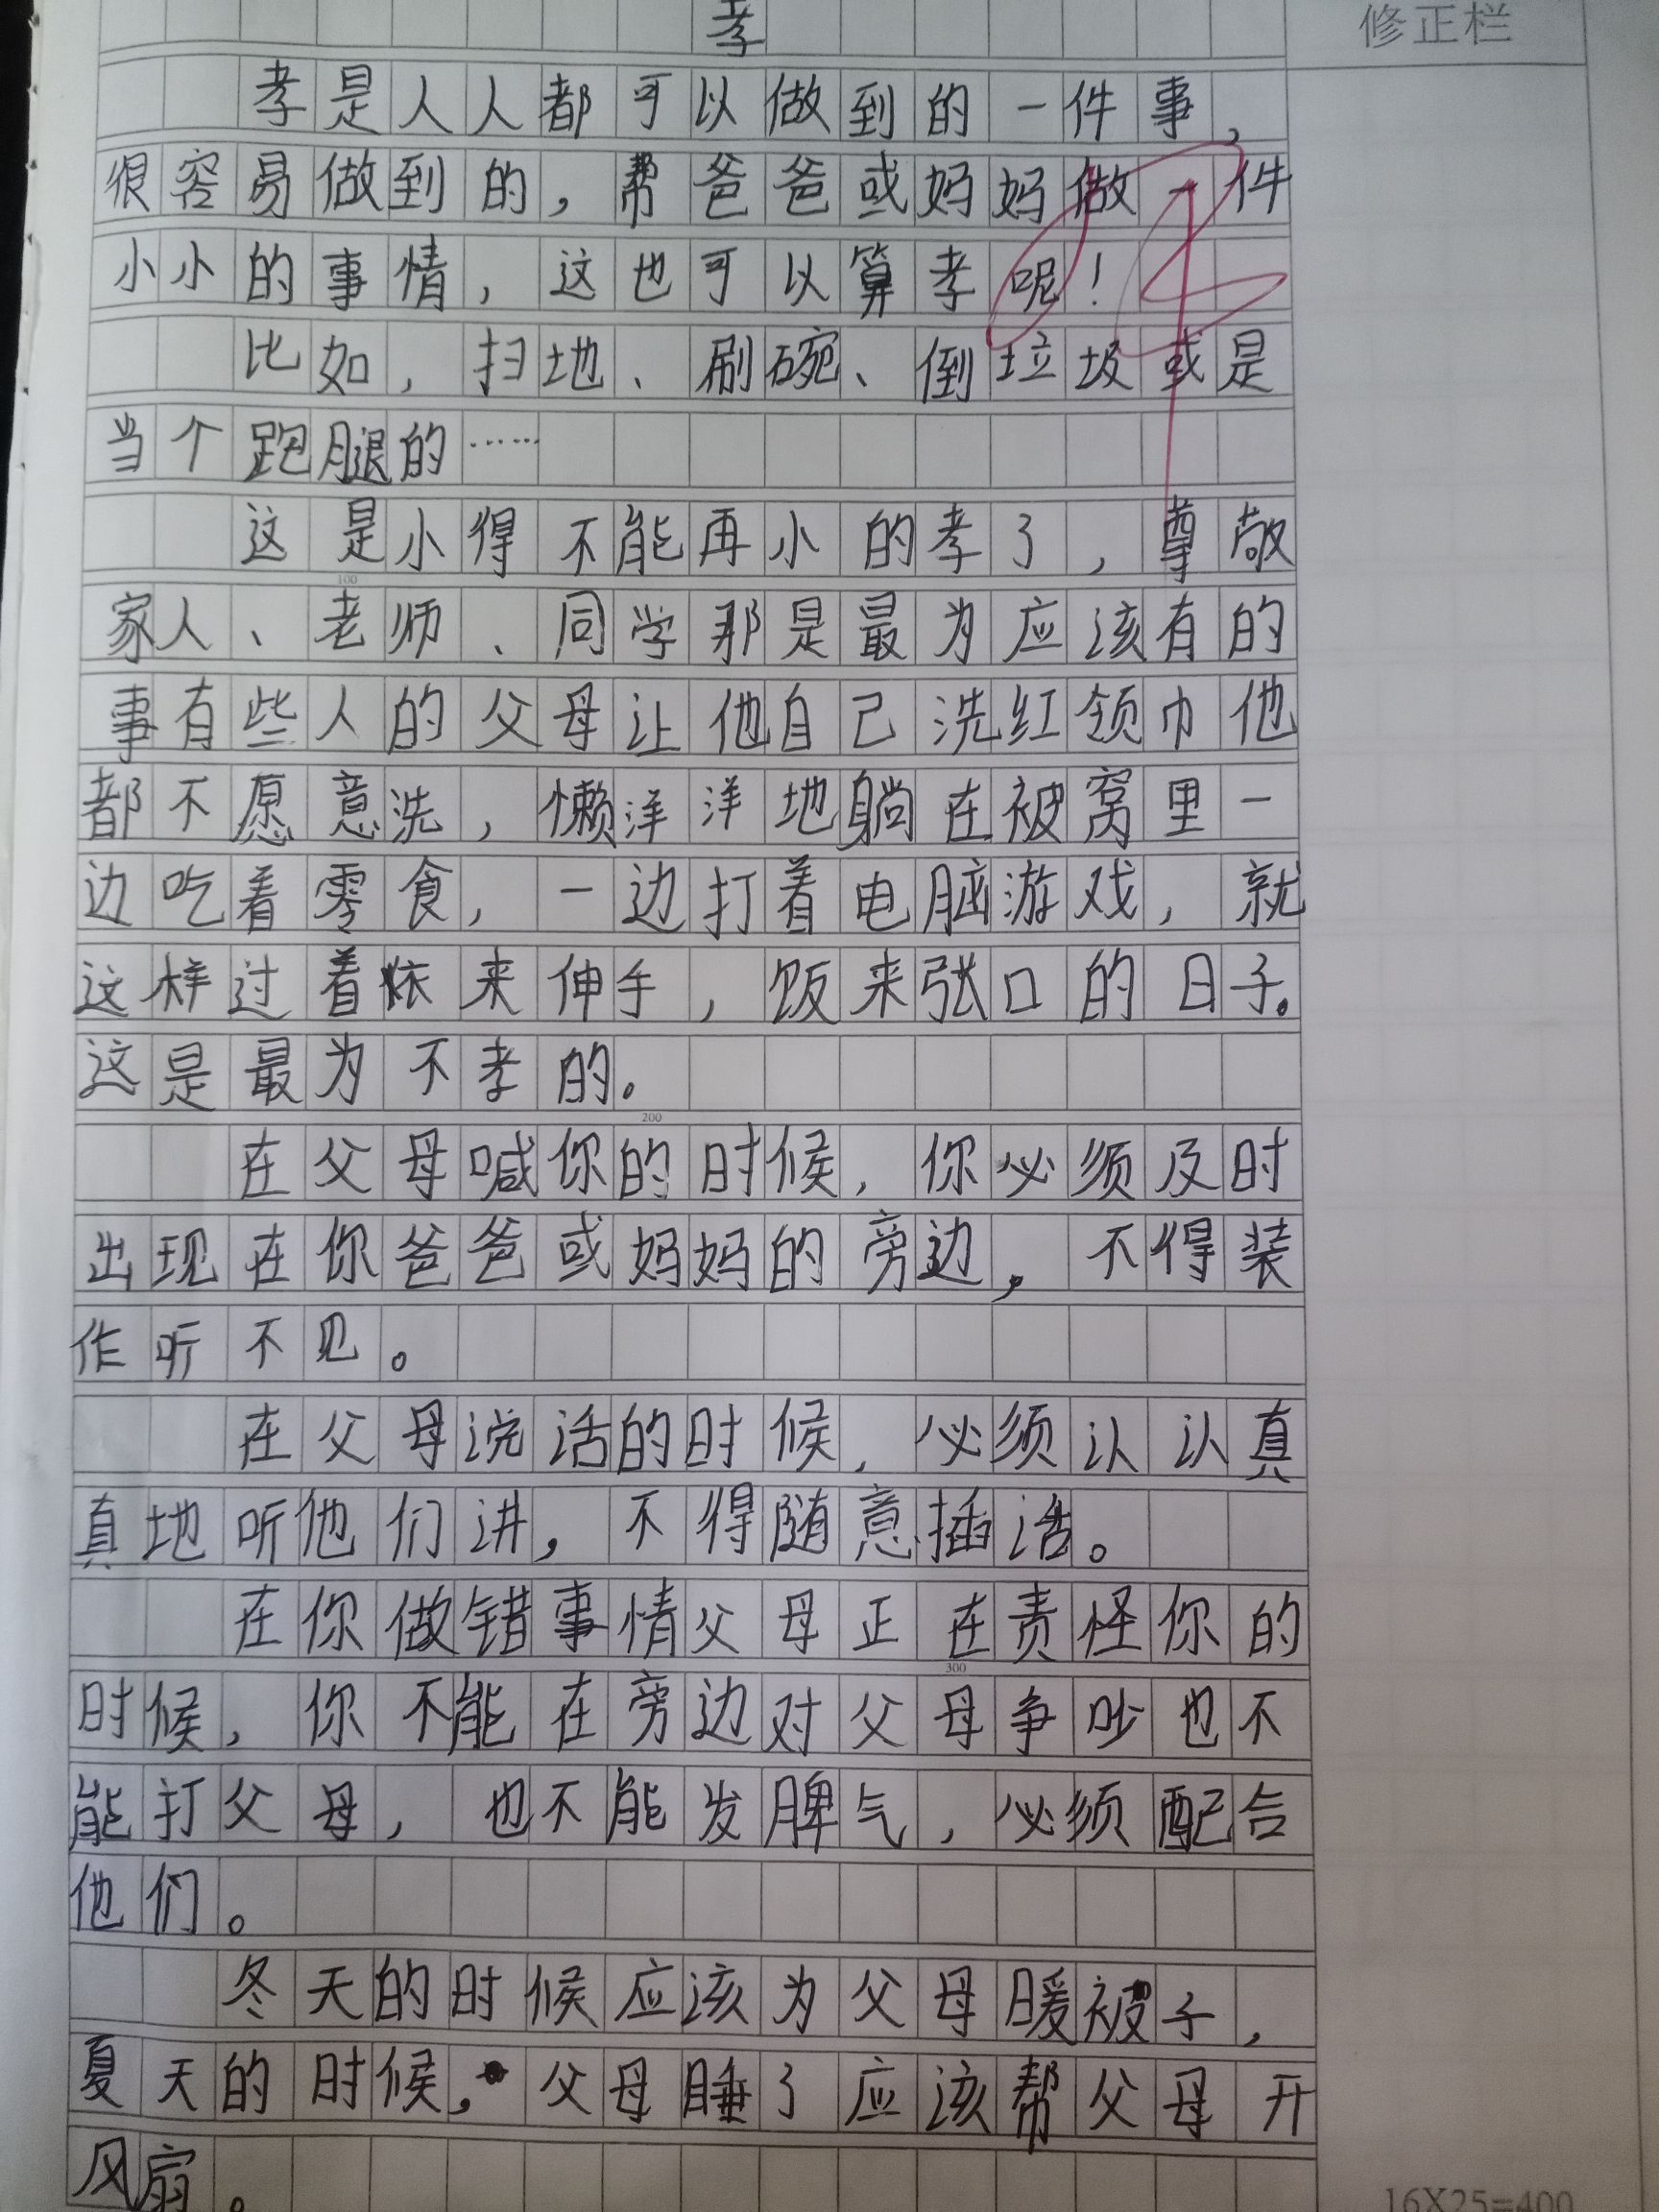 孝
修正栏
孝是人人都可以做到的一件事,
很容易做到的,帮爸爸或妈妈做一件
小小的事情,这也可以算孝呢!
比如,扫地、刷碗、倒垃圾或是
当个跑腿的……
这是小得不能再小的孝了,尊敬
100
家人、老师、同学那是最为应该有的
事有些人的父母让他自己洗红领巾他
都不愿意洗,懒洋洋地躺在被窝里一
边吃着零食,一边打着电脑游戏,就
这样过着依来伸手,饭来张口的日子。
这是最为不孝的。
200
在父母喊你的时候,你必须及时
出现在你爸爸或妈妈的旁边,不得装
作听不见。
在父母说话的时候,必须认认真
真地听他们讲,不得随意插话。
在你做错事情父母正在责怪你的
300
时候,你不能在旁边对父母争吵也不
能打父母,也不能发脾气,必须配合
他们。
冬天的时候应该为父母暖被子,
夏天的时候,父母睡了应该帮父母开
风扇。
16X25=400